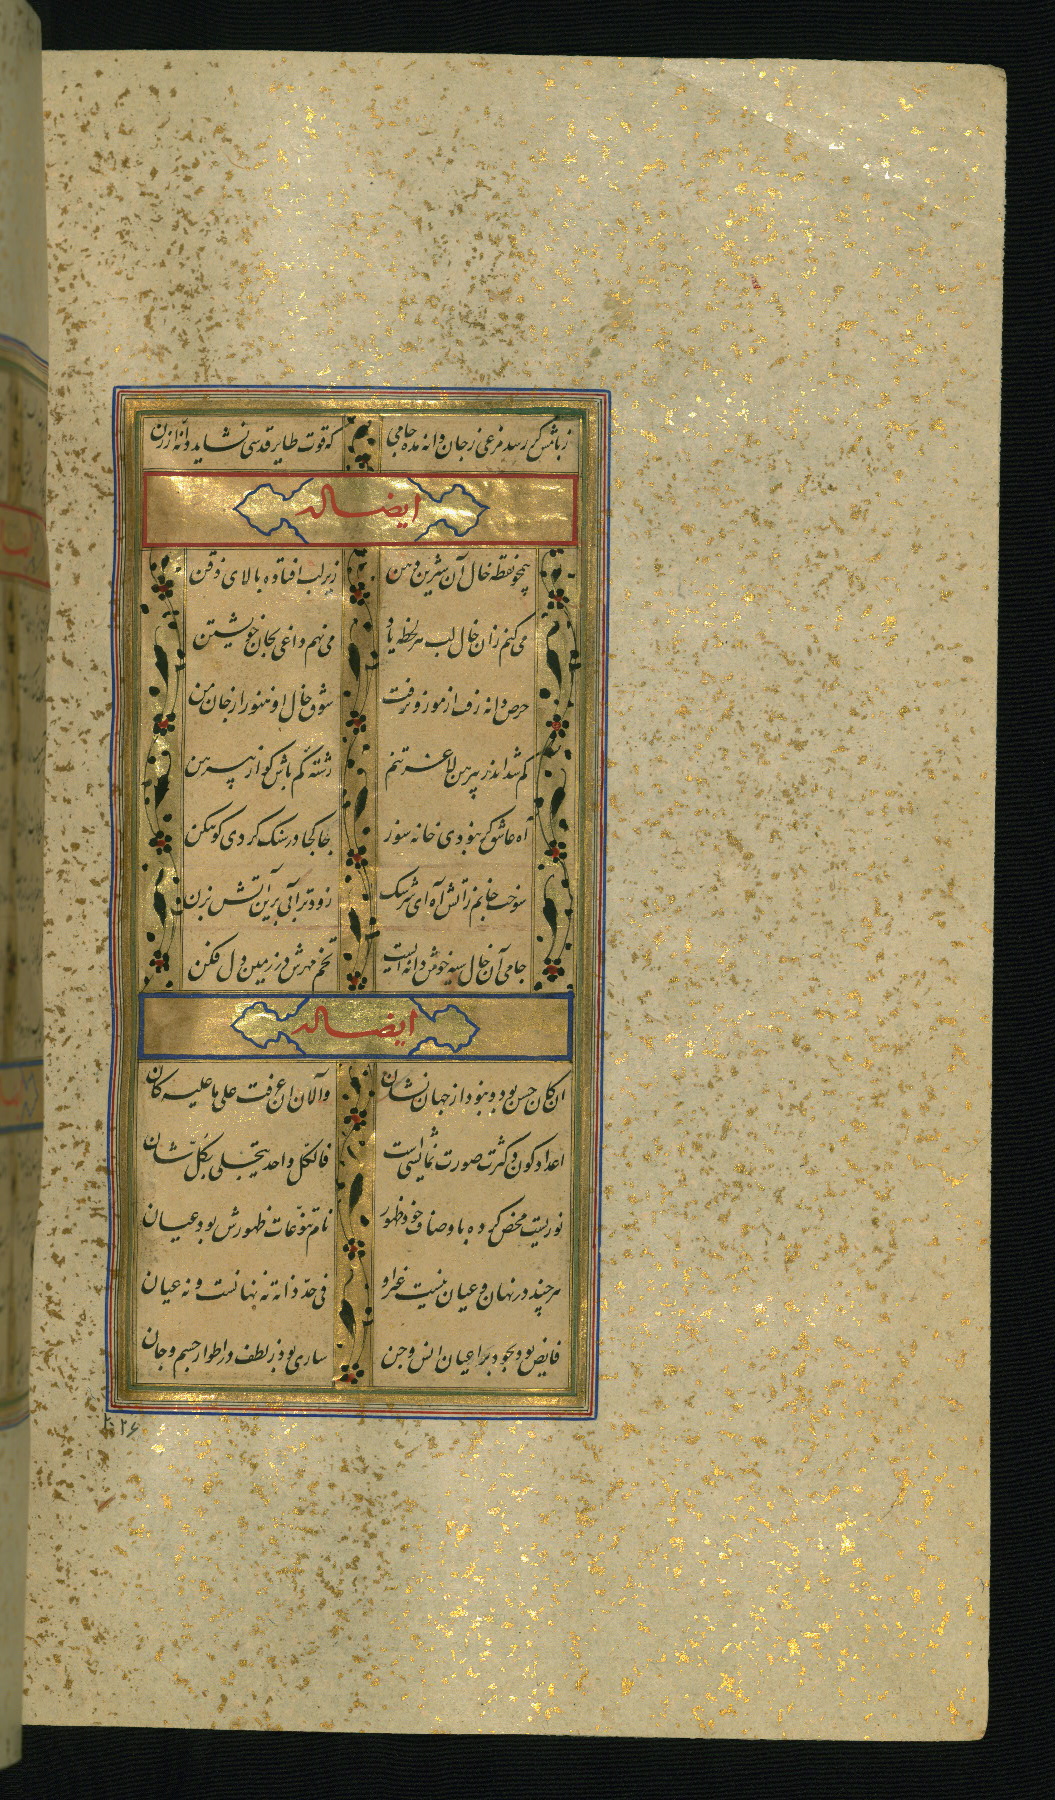 ز باغش گر رسد مرغی ز جان دانه مده جامی که قوت طایر قدسی نشاید دانه ارزن
ایضا له
همچو نقطه خال آن شیرین دهن زیر لب افتاده بالای ذقن
می کنم زان خال لب هر لحظه یاد می نهم داغی بجان خویشتن
حرص دانه زف از مور و نرفت شوق خال او هنوز از جان من
کم شد اندر پیرهن لاغر تنم رشته کم باش کو از پیرهن
آه عاشق گر نبودی خانه سوز جا کجا در سنک کردی کوهکن
سوخت جانم ز آتش آه ای سرشک زودتر آبی برین آتش بزن
جامی آن خال سیه خوش دانه ایست تخم مهرش در زمین دل فکن
ایضا له
ان کان حسن بود و نبود از جهان نشان والآن ان عرفت علی ما علیه کان
اعداد کون و کثرت صورت نمایشی است فالکل واحد یتجلی بکل شان
نوریست محض کرده باوصاف خود ظهور نام تنوعات ظهورش بود عیان
هر چند در نهان و عیان نیست غیر او فی حد ذاته نه نهانست و نه عیان
فایض بود بجود بر اعیان انس و جن ساری بود ز لطف در اطوار جسم و جان
۲۰۲۶